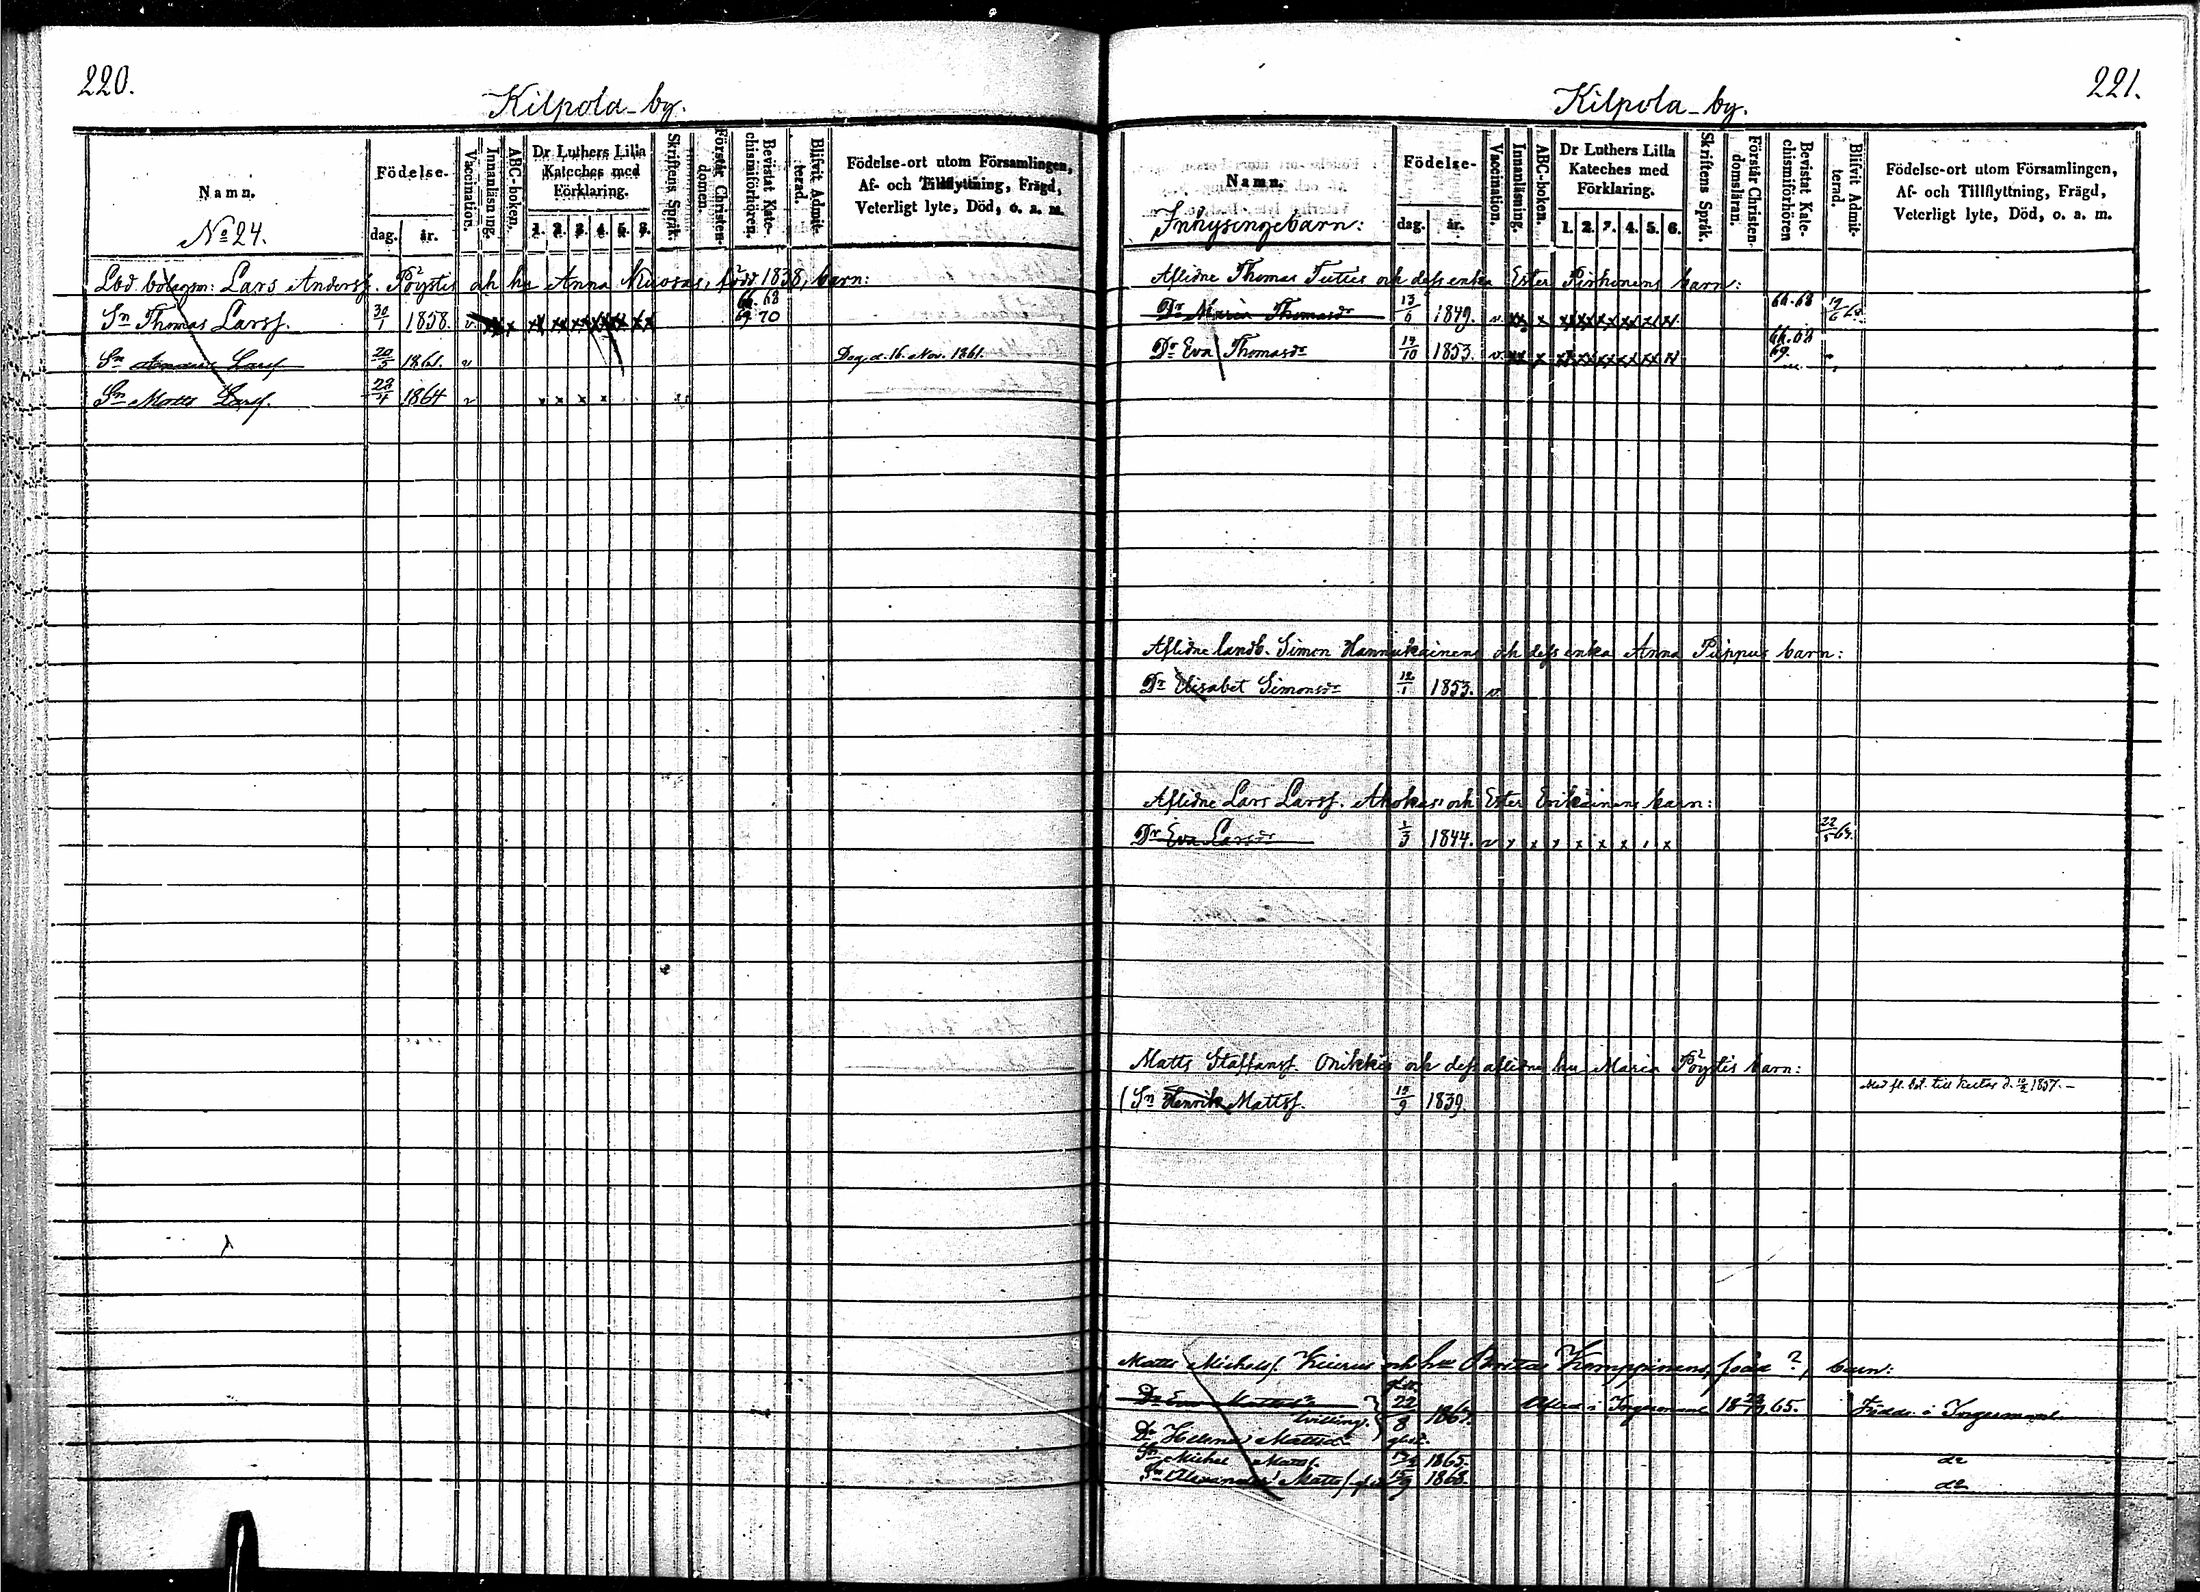 220.
Kilpola by.
Namn.
No 24.
Födelse-
dag. år.
Vaccination.
Innanläsning.
ABC-boken.
Dr Luthers Lilla Kateches med Förklaring.
1. 2. 3. 4. 5. 6.
Skriftens Språk.
Förstår Christendomen.
Bevistat Katechismiförhören.
Blifvit Admitterad.
Födelse-ort utom Församlingen, Af- och Tillflyttning, Frägd, Veterligt lyte, Död, o. a. m.
Lars Andersf. Pöystis och hu Anna Nuoras, född 1838, barn:
Sn Thomas Larsf. 30/1 1858. v. 66. 68 69 70
Sn Larsf 20/3 1861. v Dog d. 16. Nov. 1861.
Sn Matts Larsf. 22/4 1864 v x x x x
221.
Kilpola by.
Namn.
Inhysingebarn:
Födelse-
dag. år.
Vaccination.
Innanläsning.
ABC-boken.
Dr Luthers Lilla Kateches med Förklaring.
1. 2. 3. 4. 5. 6.
Skriftens Språk.
Förstår Christendomsläran.
Bevistat Katechismiförhören
Blifvit Admitterad.
Födelse-ort utom Församlingen, Af- och Tillflyttning, Frägd, Veterligt lyte, Död, o. a. m.
Aflidne Thomas Tuties och dess enka Ester Pirhonens barn:
Dr Maria Thomasdr 13/6 1849. v. 66.68
Dr Eva Thomasdr 14/10 1853. v. 66.68 69.
Aflidne landb. Simon Hannukainens och dess enka Anna Puppus barn:
Dr Elisabet Simonsdr 12/1 1853. v.
Aflidne Lars Larsf. Ahokas och Ester Erikäinens barn:
Dr Eva Larsdr 1/3 1844. v x x x x x x x x 22/5 64.
Matts Staffansf. Onikkis och dess aflidne hu Maria Pöystis barn:
Sn Henrik Mattsf. 15/9 1839. 1857.
Matts Michelsf. Kiurus och hu Beatas Kamppinens, född ?, barn:
Dr Eva Mattsdr 22/8 i Ingermanl. 65. Födde i Ingermanl.
tvilling.
Dr Helena Mattsdr
Sn Michel Mattsf. 1865. do
Sn Alexander Mattsf 1868. do